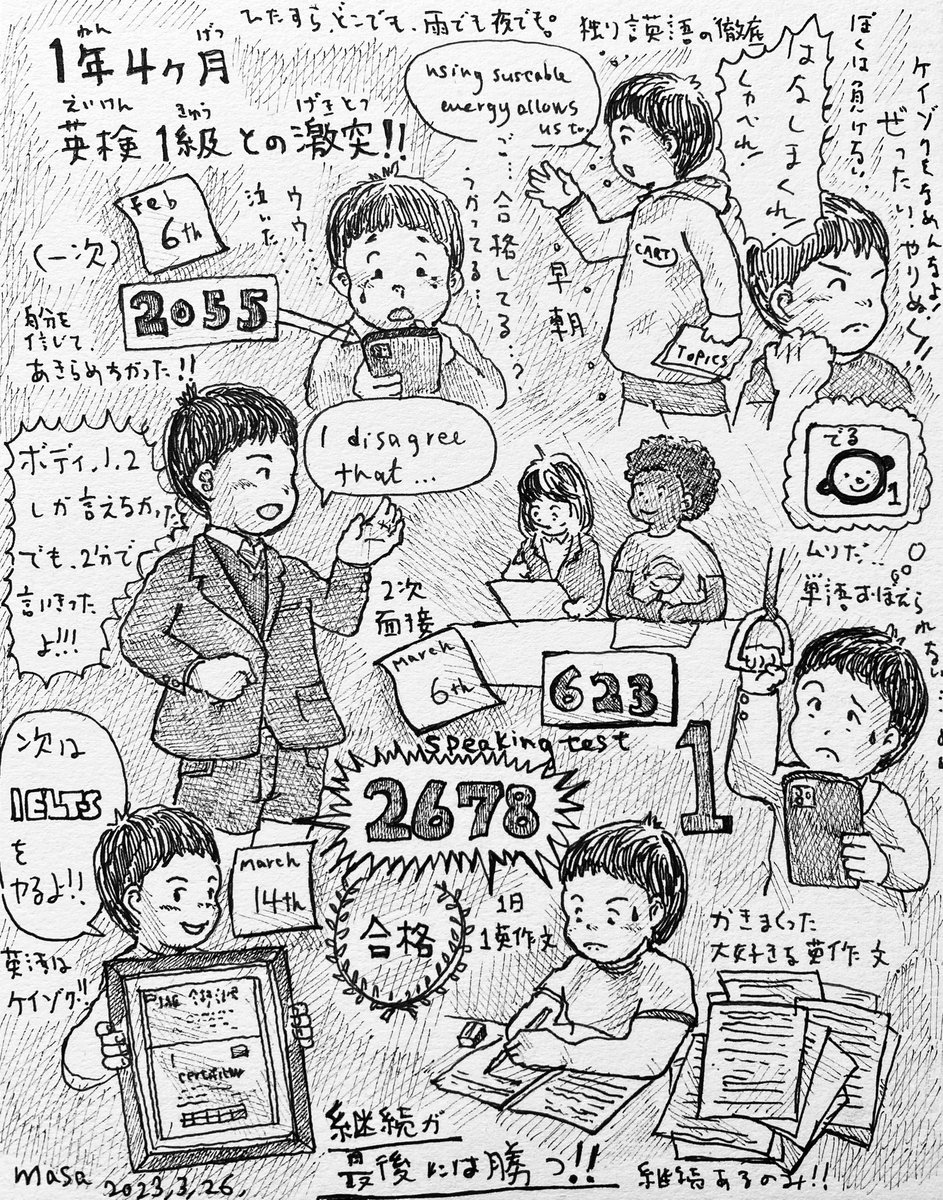 ひたすら、どこでも、雨でも夜でも。
独り英語の徹底
1年4ヶ月
ねん
げつ
えいけん
きゅう
げきとつ
英検1級との激突!!
using sustable
energy allows
us to
はなしまくれ!
しゃべれ!
ぼくは負けない
ケイゾクをなめんなよ!
ぜったい、やりぬく!!
Feb
6th
(一次)
2055
ウウ…
泣いた…
ご…合格してる…?
うかってる…
早朝
CART
Topics
自分を
信じて、
あきらめなかった!!
ボディ、1、2
しか言えなかった
でも、2分で
言いきった
よ!!!
I disagree
that...
でる
1
ムリだ…
単語おぼえられない…
2次
面接
March
6th
623
speaking test
1
2678
次は
IELTS
を
ヤるよ!!
March
14th
合格
1日
1英作文
かきまくった
大好きな英作文
英語は
ケイゾク!!
certificate
継続が
最後には勝つ!!
継続あるのみ!!
masa
2023,3,26,